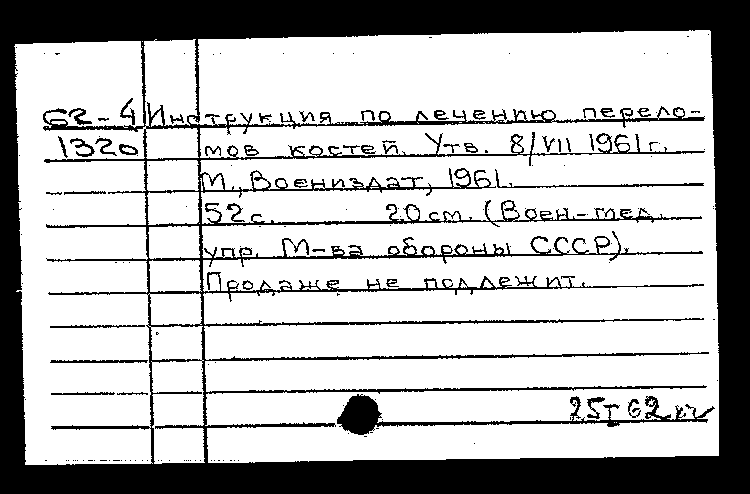 62-4 Инструкция по лечению перело-
1320 мов костей. Утв. 8/VII 1961г.
М., Воениздат, 1961.
52с. 20см. (Воен.-мед.
упр. М-ва обороны СССР).
Продаже не подлежит.
25 I 62